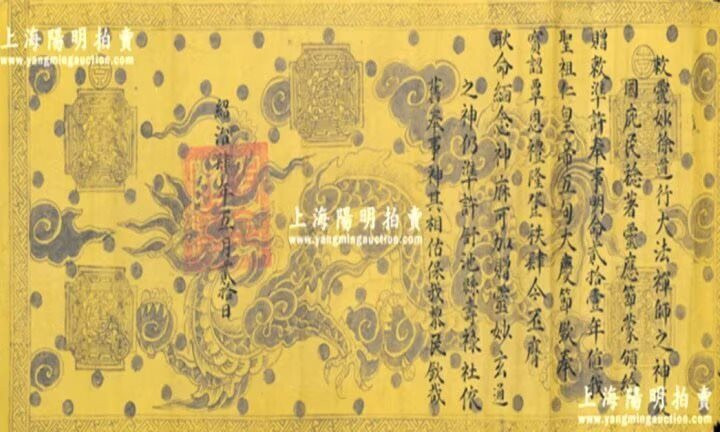 敕靈妙徐道行大法禪師之神護
國庇民稔著靈應節蒙頒給
贈敕準許奉事明命貳拾壹年值我
聖祖仁皇帝五旬大慶節欽奉
寶詔覃恩禮隆登秩肆今丕膺
耿命緬念神庥可加贈靈妙玄通
之神仍準許池縣壽祿社依
舊奉事神其相佑保我黎民欽哉
紹治肆年五月貳拾日
上海陽明拍賣
www.yangmingauction.com
上海陽明拍賣
www.yangmingauction.com
上海陽明拍賣
www.yangmingauction.com
上海陽明拍賣
www.yangmingauction.com